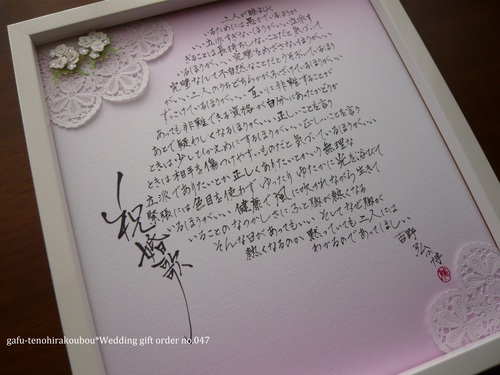 二人が睦まじく
いるためには愚かでいるほうが
いい立派すぎないほうがいい立派す
ぎることは長持ちしないことだと気づいて
いるほうがいい 完璧をめざさないほうがいい
完璧なんて不自然なことだとうそぶいているほう
がいい 二人のうちどちらかがふざけているほうがいい
ずっこけているほうがいい 互いに非難することが
あっても非難できる資格が自分にあったかどうか
あとで疑わしくなるほうがいい 正しいことを言う
ときは少しひかえめにするほうがいい 正しいことを言う
ときは相手を傷つけやすいものだと気づいているほうがいい
立派でありたいとか正しくありたいとかいう無理な
緊張には色目を使わず ゆったり ゆたかに 光を浴びて
いるほうがいい 健康で風に吹かれながら生きて
いることのなつかしさに ふと胸が熱くなる
そんな日があってもいい そしてなぜ胸が
熱くなるのか 黙っていても二人には
わかるのであってほしい
吉野 弘
祝婚歌
gafu-tenohirakoubou*Wedding gift order no.047